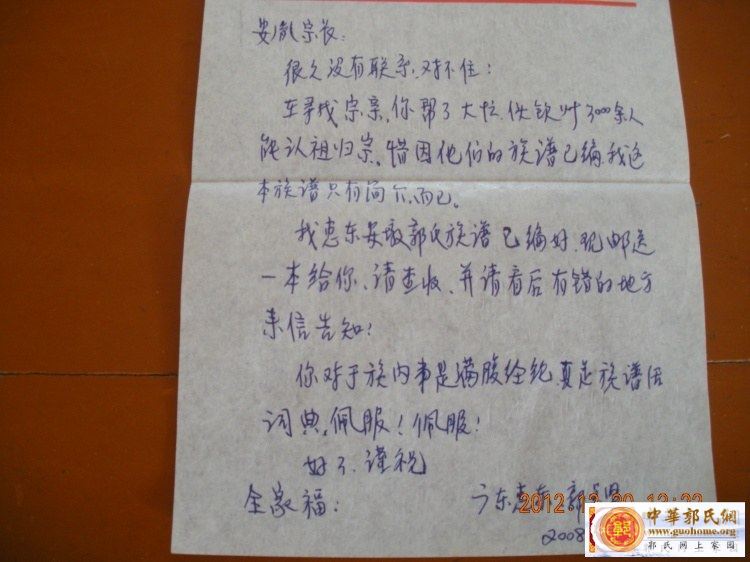 宗长:
很久没有联系,对不住!
在寻找宗亲,你帮了大忙,使钦州3000余人
能认祖归宗,惜因他们的族谱已编,我这
本族谱只有简介而已。
我惠东安墩郭氏族谱已编好,现邮送
一本给你、请查收、并请看后有错的地方
来信告知!
你对于族内事是满腹经纶,真是族谱活
词典,佩服!佩服!
好了、谨祝
全家福!
广东惠东 郭
2008
2012-12-20 12:22
中華郭氏網
www.guohome.org
郭氏网上家园